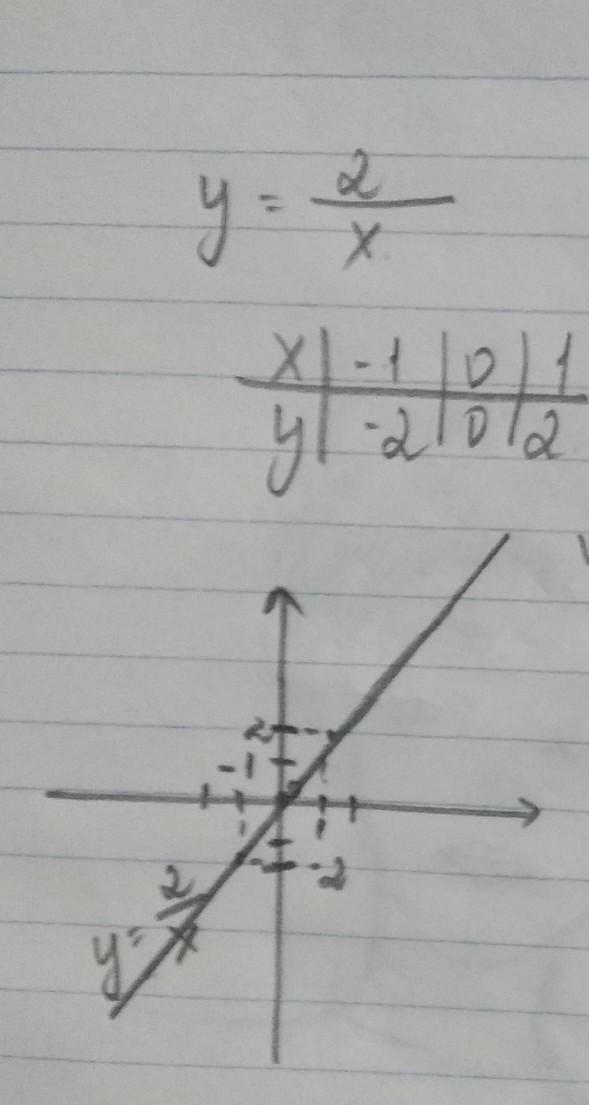 y = 2/x
x | -1 | 0 | 1
y | -2 | 0 | 2
2
-1
1
1
-2
y = 2/x